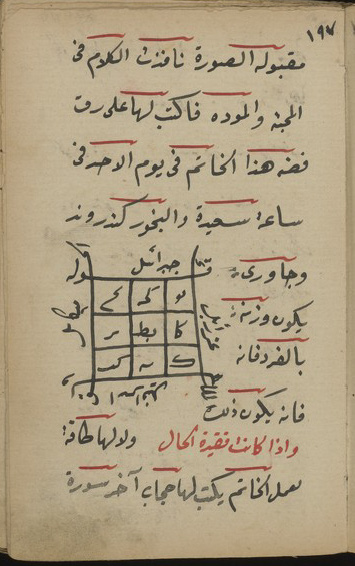 ١٩٧
مقبولة الصورة نافذت الكلام في
المحبة والموده فاكتب لها على رق
فضه هذا الخاتم في يوم الاحد في
ساعة سعيدة والبخور كندر وند
وجاوري
جبرائيل
يكون وزنه
كا بط
بالفرد فانه
فانه يكون ذلك
واذا كانت فقيرة الحال ولا لها طاقة
بعمل الخاتم يكتب لها حجاب آخر سورة